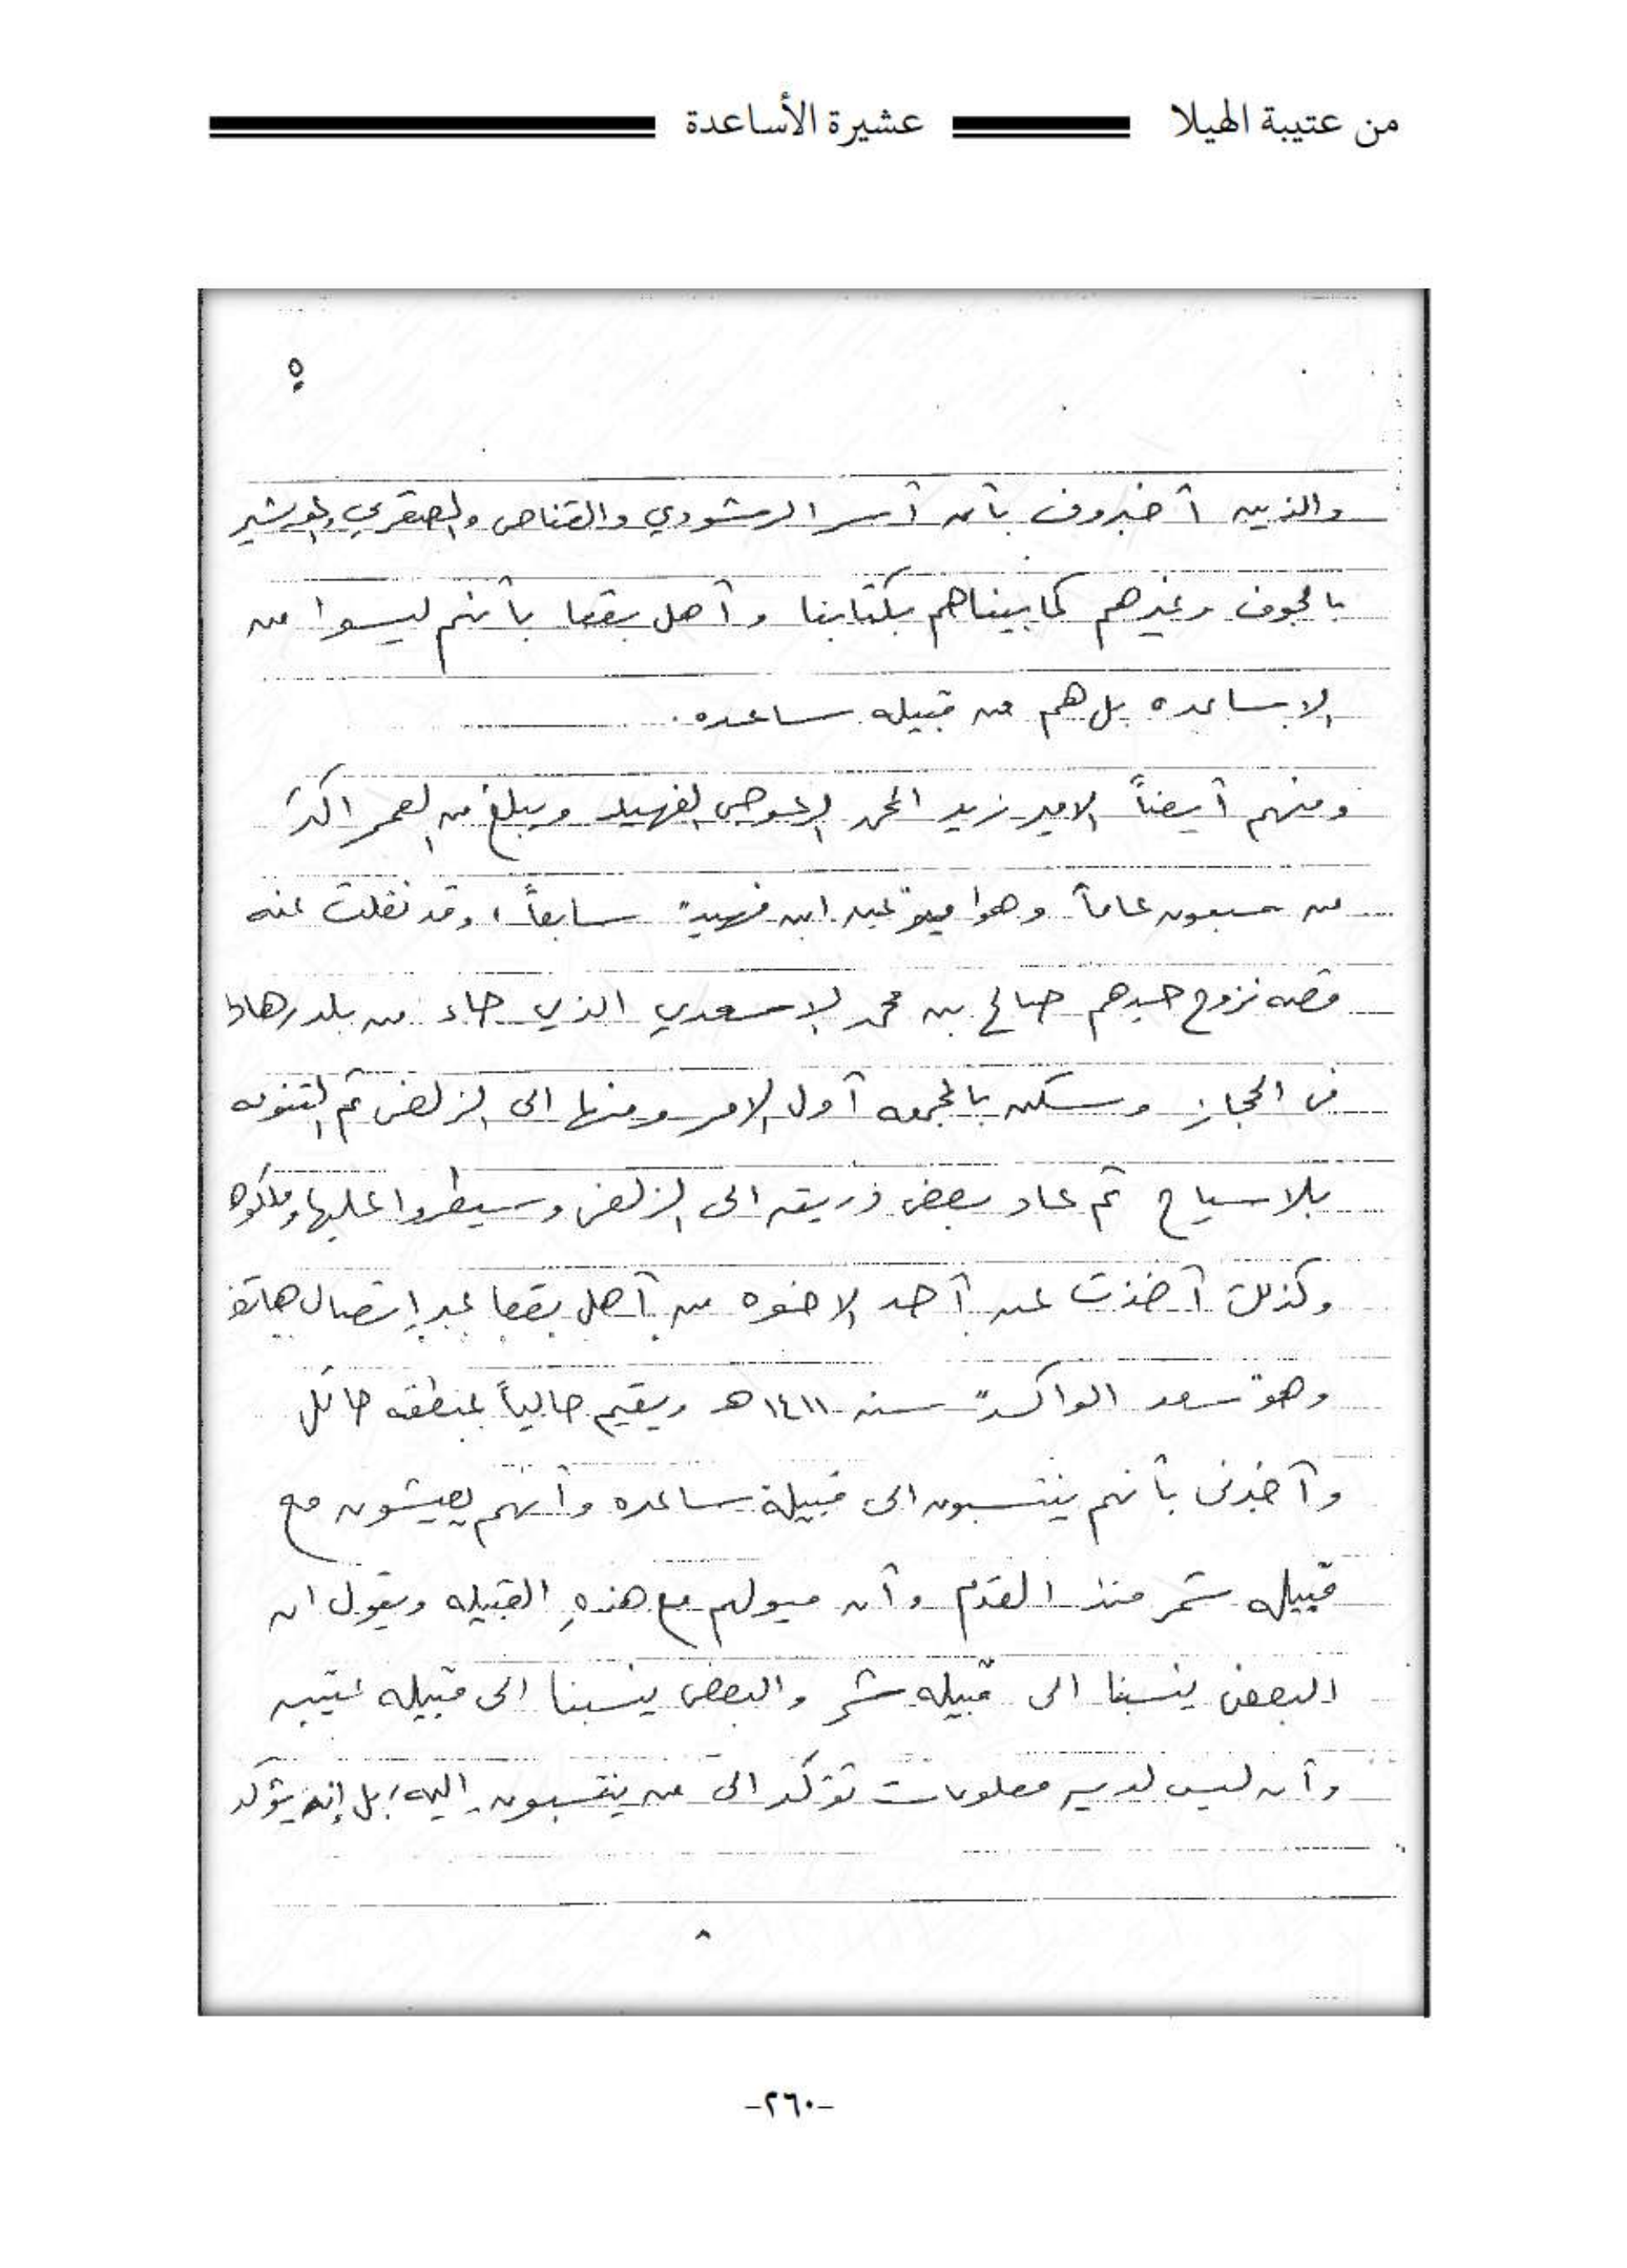 من عتيبة الهيلا
عشيرة الأساعدة
٥
والذين أخبروني بأن أسر الرشودي والقناص والصقري
بالجوف وغيرهم كما بيناهم بكتابنا وأهل بقعا بأنهم ليسوا من
الاساعده بل هم من قبيله ساعده .
ومنهم أيضاً الامير زيد المحمد الفهيد ويبلغ من العمر اكثر
من سبعون عاماً وهو امير عين ابن فهيد" سابعاً، وقد نقلت عنه
قصه نزوح جدهم صالح بن محمد الاسعدي الذي جاء من بلد رهاط
في الحجاز وسكن بالمجمعه أول الامر ومنها الى الزلفي ثم التنومه
بلاسياح ثم عاد بعض ذريته الى الزلفي وسيطروا عليها وملكوها
وكذلك أخذت عن أحد الاخوه من أهل بقعا عبر إتصال هاتفي
وهو" سعد الواكد" سنه ١٤١١هـ ويقيم حالياً بمنطقه حائل
وأخبرني بأنهم ينتسبون الى قبيلة ساعده وأنهم يعيشون مع
قبيله شمر منذ القدم وأن ميولهم مع هذهِ القبيله ويقول ان
البعض ينسبنا الى قبيله شمر والبعض ينسبنا الى قبيله عتيبه
وأن ليس لديه معلومات تؤكد الى من ينتسبون اليه، بل إنه يؤكد
٨
-٢٦٠-